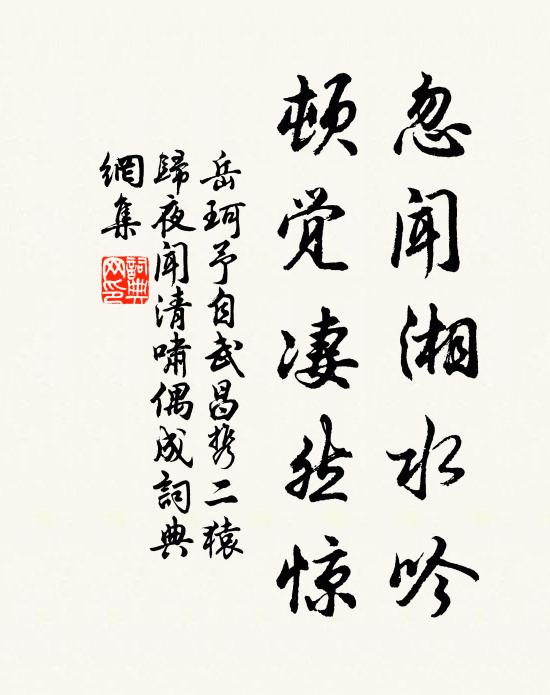 忽闻湘水吟
顿觉凄然惊
岳珂予自武昌携二猿
歸夜闻清啸偶成詞典
網集
詞典
网印